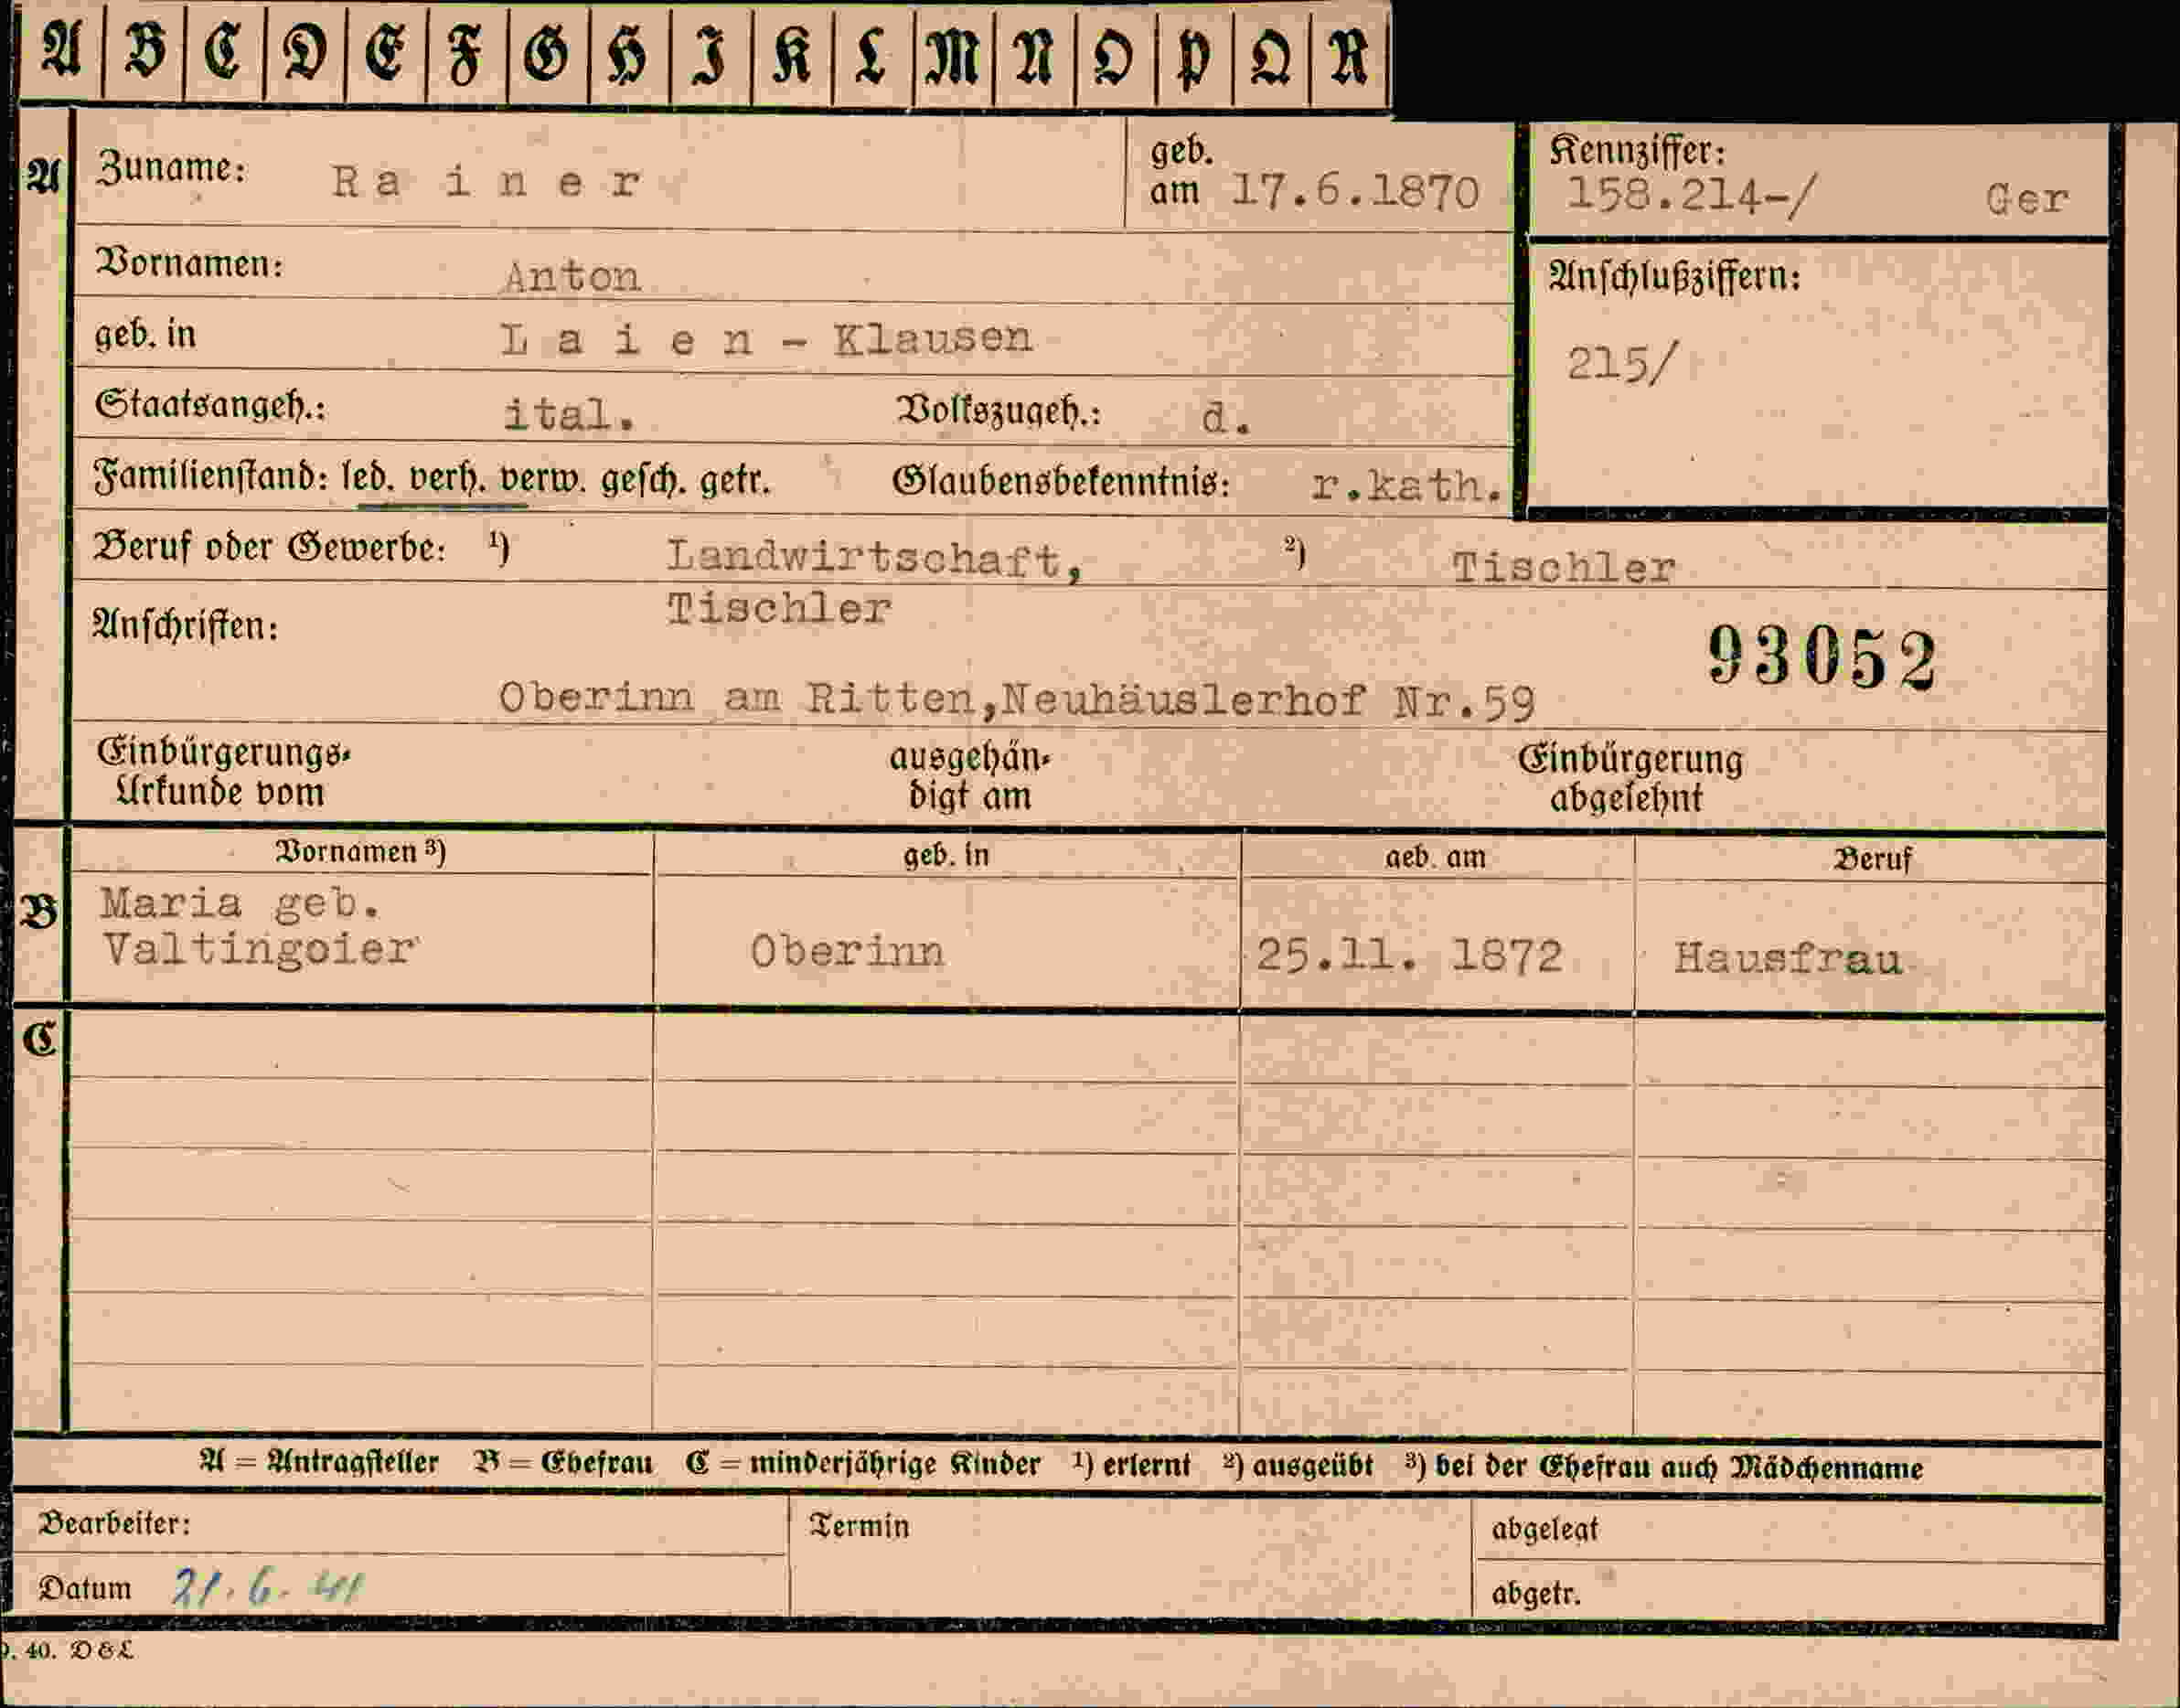 A B C D E F G H I K L M N O P Q R
A Zuname: Rainer geb. am 17.6.1870
Kennziffer: 158.214-/ Ger
Vornamen: Anton
Anschlußziffern:
geb. in Laien - Klausen
215/
Staatsangeh.: ital. Volkszugeh.: d.
Familienstand: led. verh. verw. gesch. getr. Glaubensbekenntnis: r.kath.
Beruf oder Gewerbe: ¹) Landwirtschaft, ²) Tischler
Tischler
Anschriften:
93052
Oberinn am Ritten,Neuhäuslerhof Nr.59
Einbürgerungs- ausgehän- Einbürgerung
Urkunde vom digt am abgelehnt
Vornamen ³) geb. in geb. am Beruf
B Maria geb.
Valtingoier Oberinn 25.11. 1872 Hausfrau
C
A = Antragsteller B = Ehefrau C = minderjährige Kinder ¹) erlernt ²) ausgeübt ³) bei der Ehefrau auch Mädchenname
Bearbeiter: Termin abgelegt
Datum 21.6.41 abgetr.
40. D & L